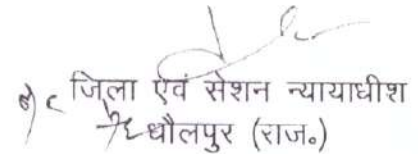 जिला एवं सेशन न्यायाधीश
धौलपुर (राज०)